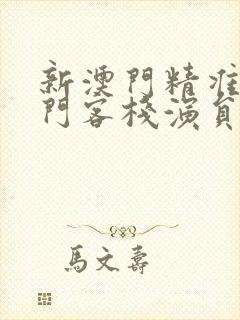 新澳門精准
門客棧演員
馬文壽